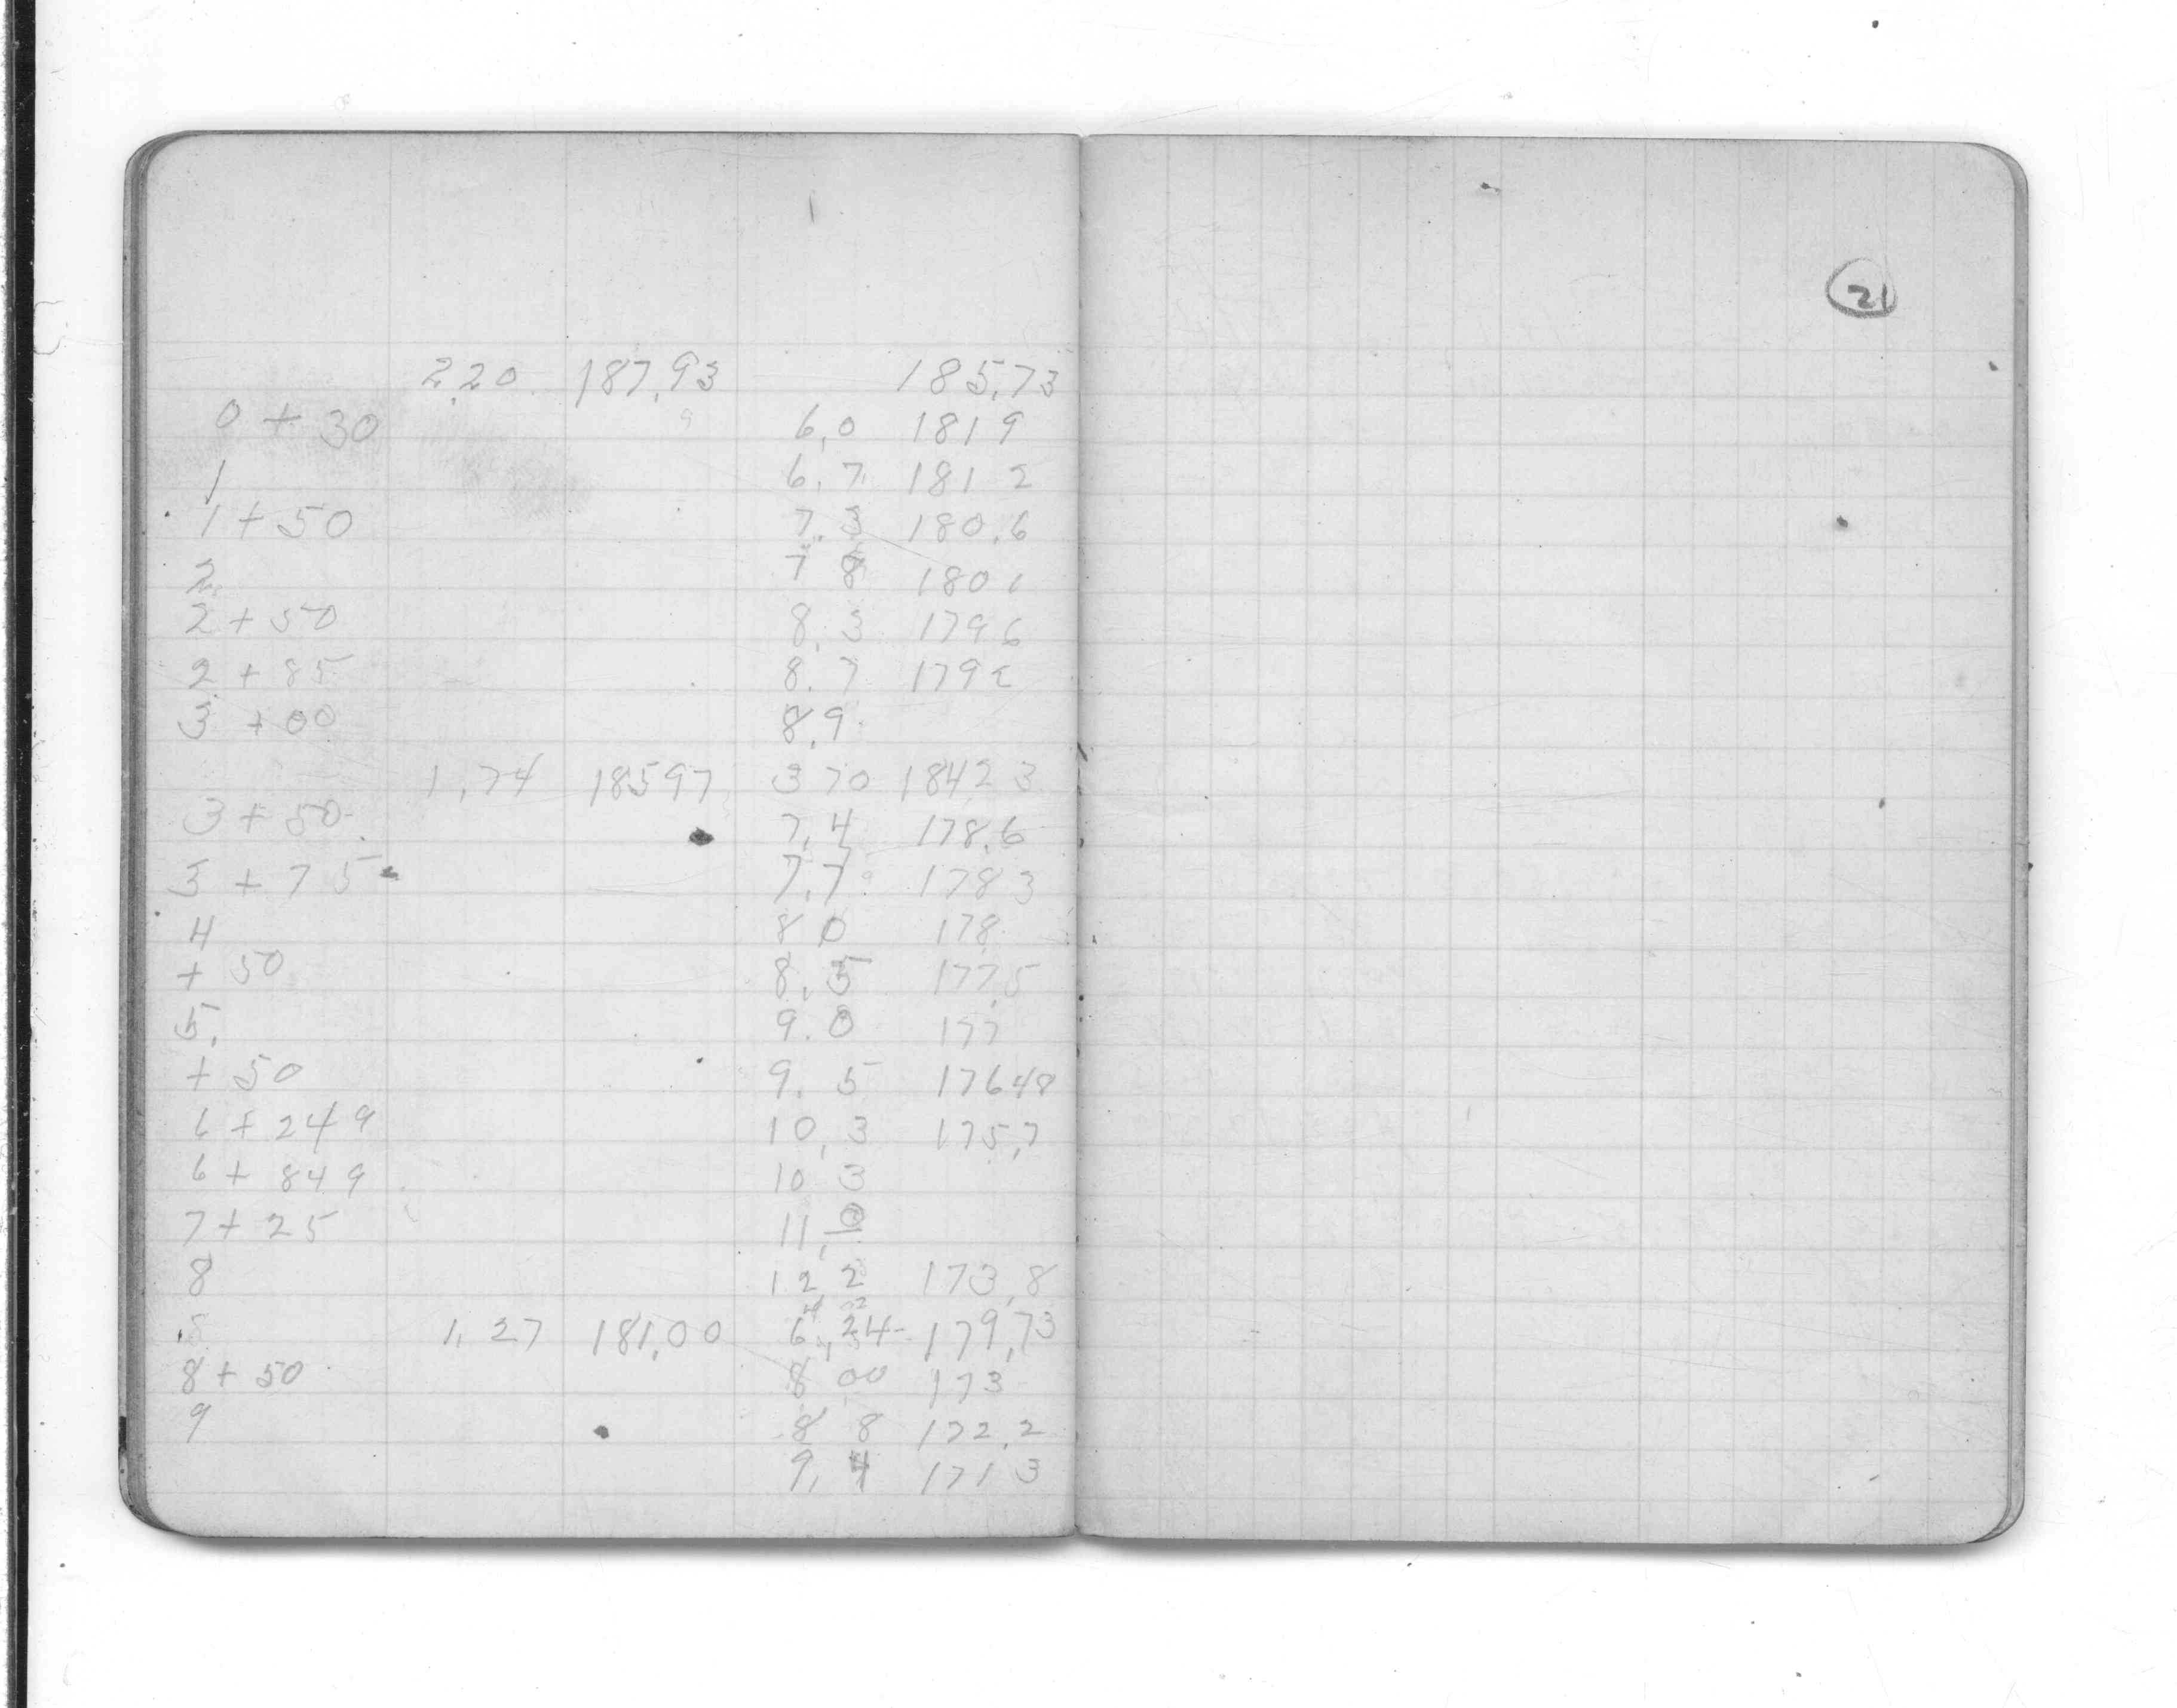 2,20 187,93 185,73
0 + 30 6,0 181 9
1 6,7 181 2
1 + 50 7,3 180,6
2 7 8 180 1
2 + 50 8,3 179 6
2 + 85 8.7 179 2
3 + 00 8,9
1,74 185 97 3 70 184 2 3
3 + 50 7,4 178,6
3 + 75 7,7 178 3
4 8 0 178
+ 50 8,5 177,5
5. 9.0 177
+ 50 9.5 176 48
6 + 249 10,3 175,7
6 + 849 10 3
7 + 25 11,0
8 12 2 173,8
8 1,27 181,00 6,24 179,73
8 + 50 8 00 173
9 8 8 172,2
9,4 171 3
21